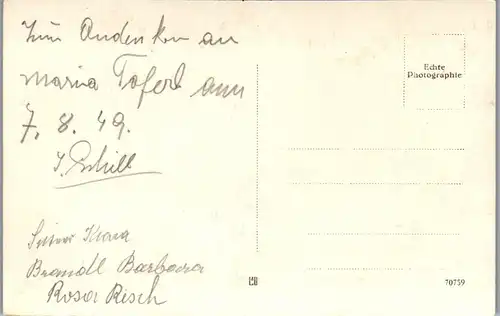 Zum Andenken an
Maria Taferl am
7. 8. 49.
Klara
Brandl Barbara
Rosa Risch
Echte
Photographie
70759